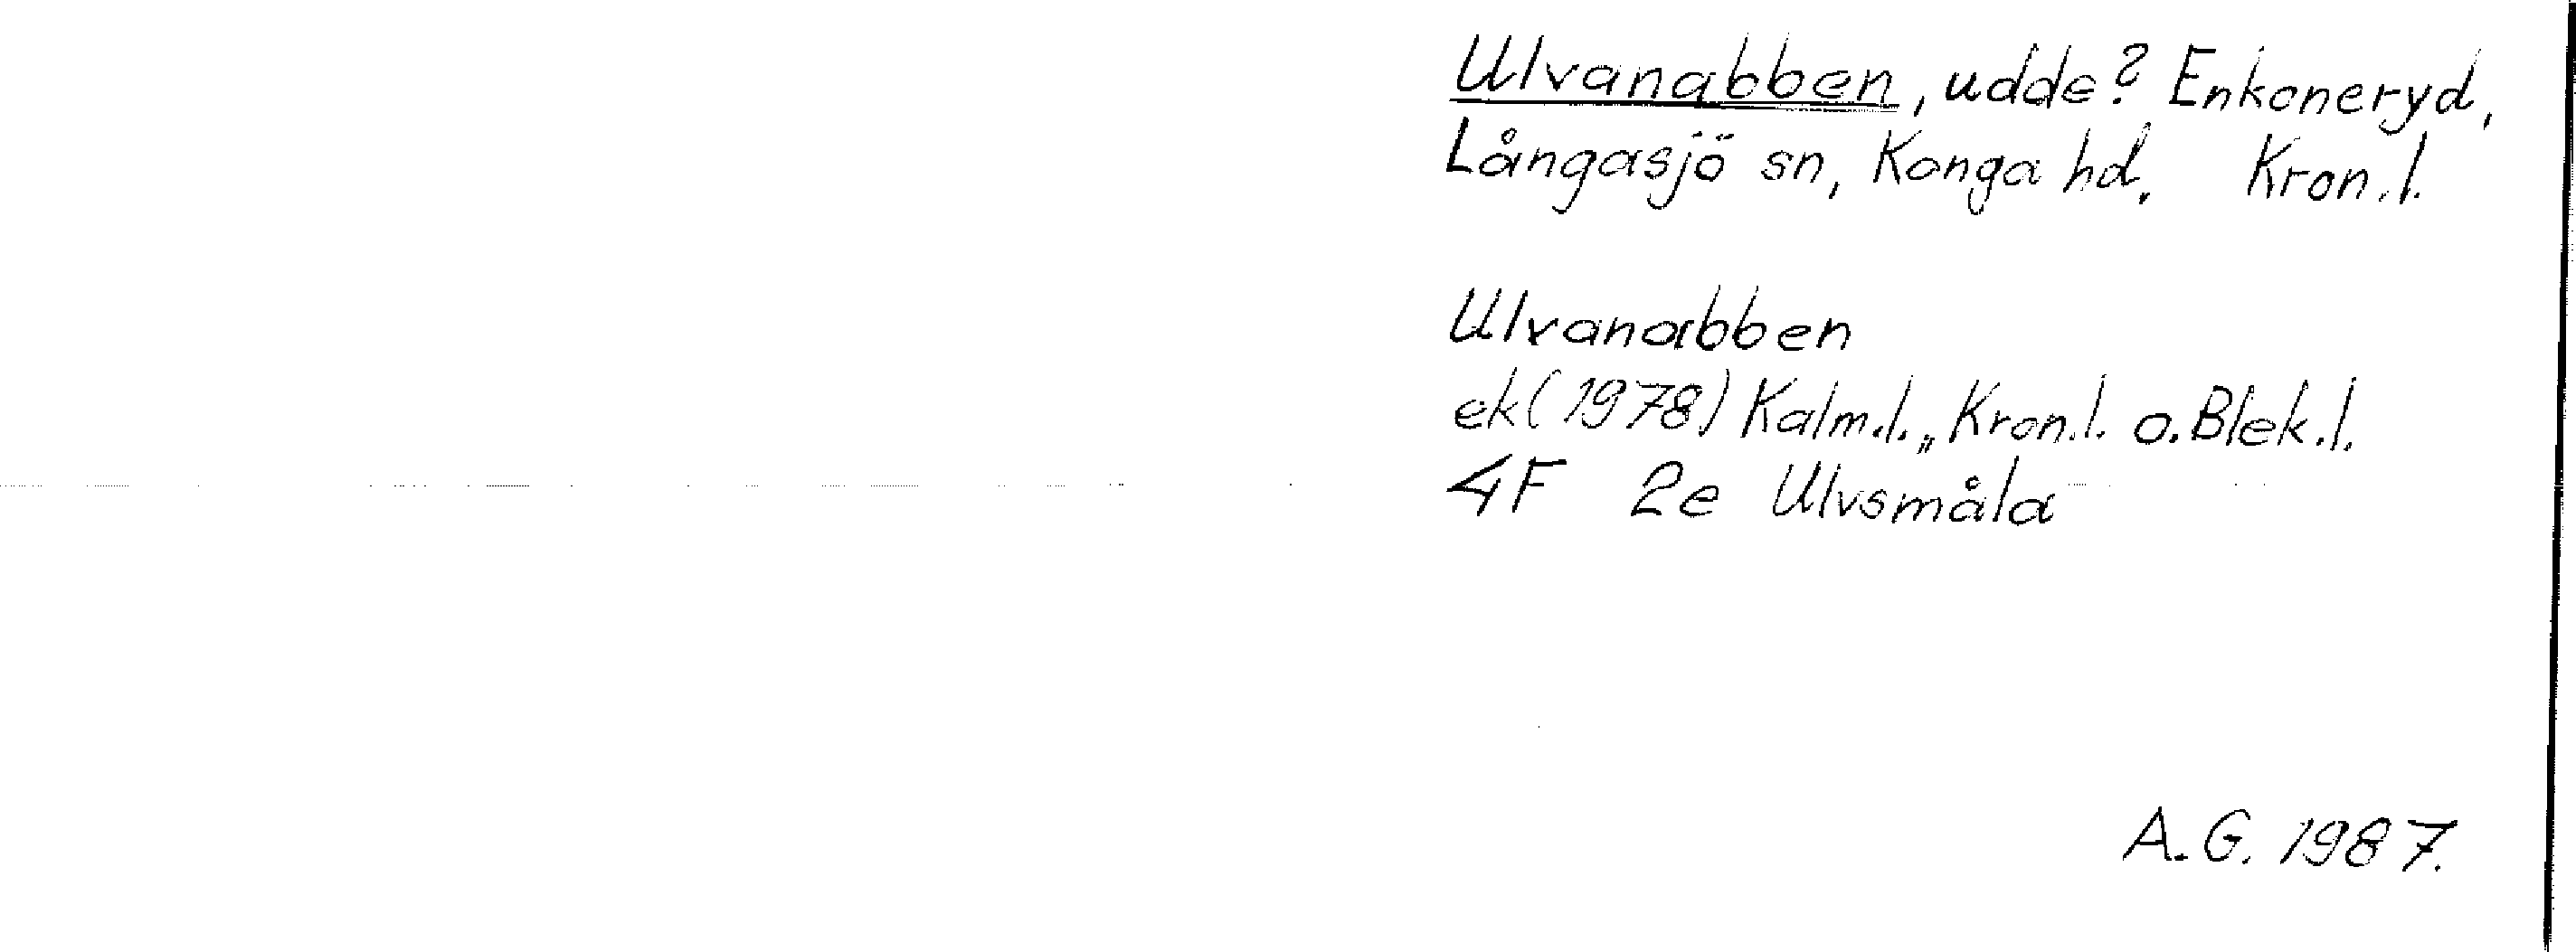 Ulvanabben, udde? Enkoneryd,
Långasjö sn, Konga hd. Kron.l.
Ulvanabben
ek (1978) Kalm.l.,, Kron.l. o. Blek.l.
4F 2e Ulvsmåla
A.G. 1987.